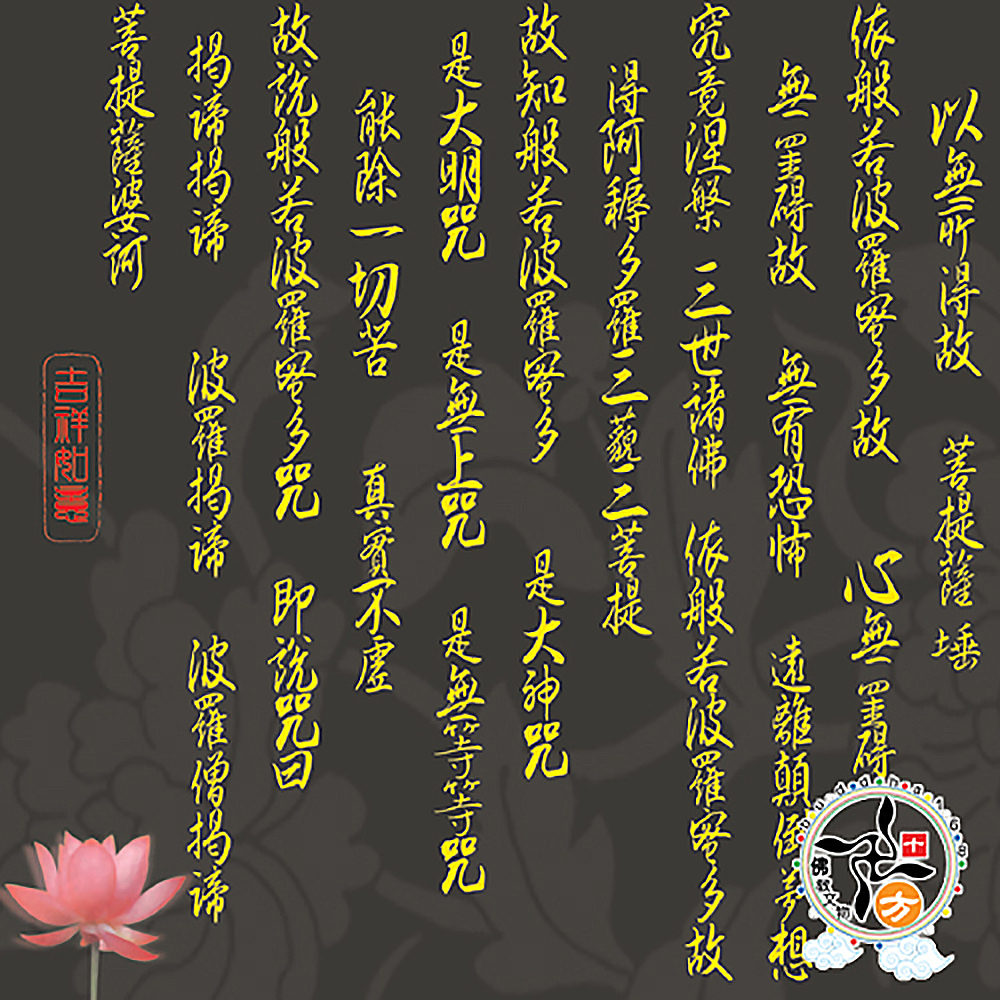 以無所得故 菩提薩埵
依般若波羅蜜多故 心無罣礙
無罣礙故 無有恐怖 遠離顛倒夢想
究竟涅槃 三世諸佛 依般若波羅蜜多故
得阿耨多羅三藐三菩提
故知般若波羅蜜多 是大神咒
是大明咒 是無上咒 是無等等咒
能除一切苦 真實不虛
故說般若波羅蜜多咒 即說咒曰
揭諦揭諦 波羅揭諦 波羅僧揭諦
菩提薩婆訶
吉祥如意
十方
佛教文物